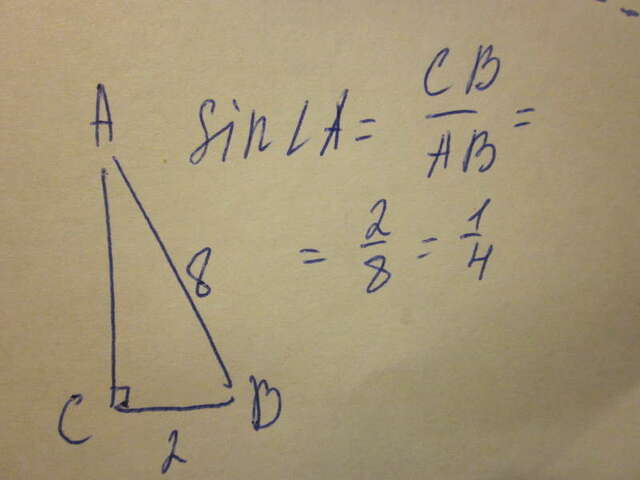 A
sin∠A = CB/AB =
= 2/8 = 1/4
8
C
B
2